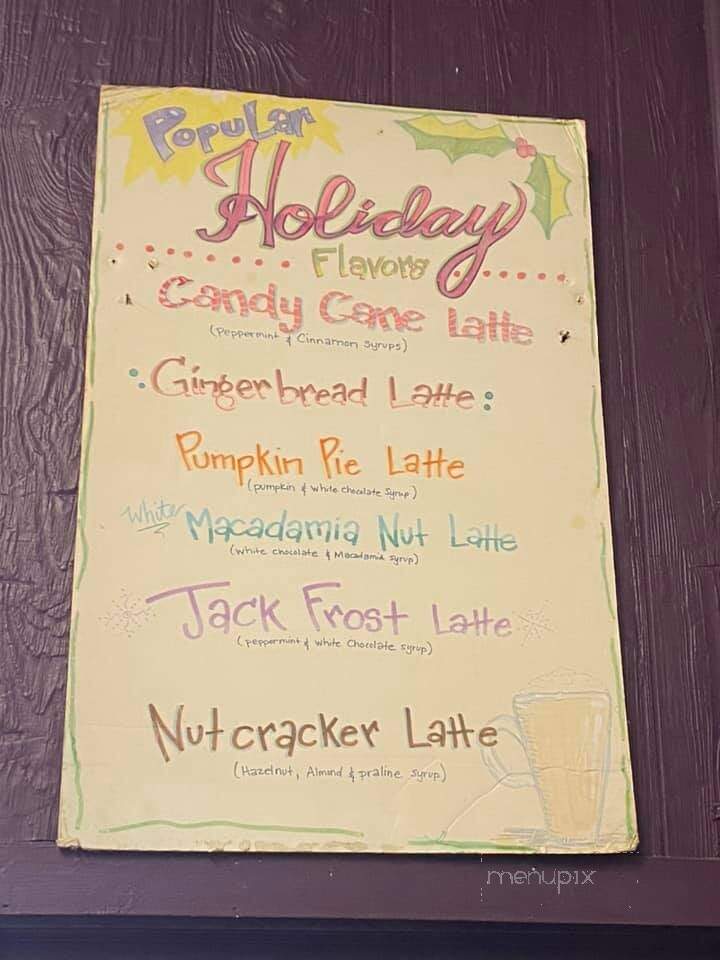 Popular
Holiday
Flavors
Candy Cane Latte
(Peppermint & Cinnamon Syrups)
Gingerbread Latte
Pumpkin Pie Latte
(pumpkin & white chocolate syrup)
White Macadamia Nut Latte
(white chocolate & Macadamia syrup)
Jack Frost Latte
(peppermint & white Chocolate syrup)
Nutcracker Latte
(Hazelnut, Almond & praline syrup)
menupix